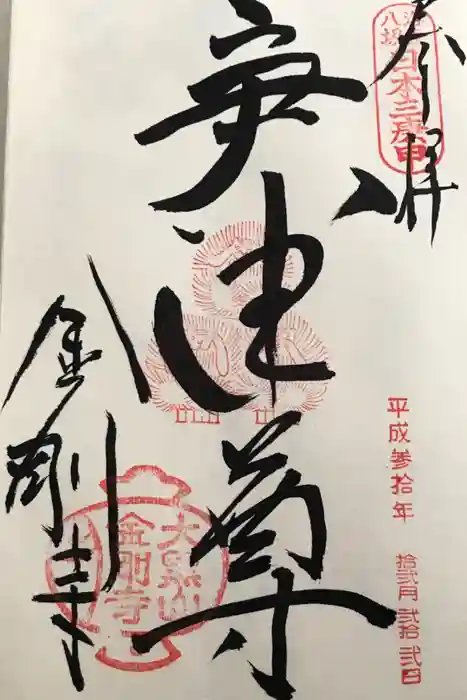 奉拝
八坂
日本三庚申
平成参拾年 拾弐月弐拾弐日
庚申尊
金剛寺
大黒山
金剛寺